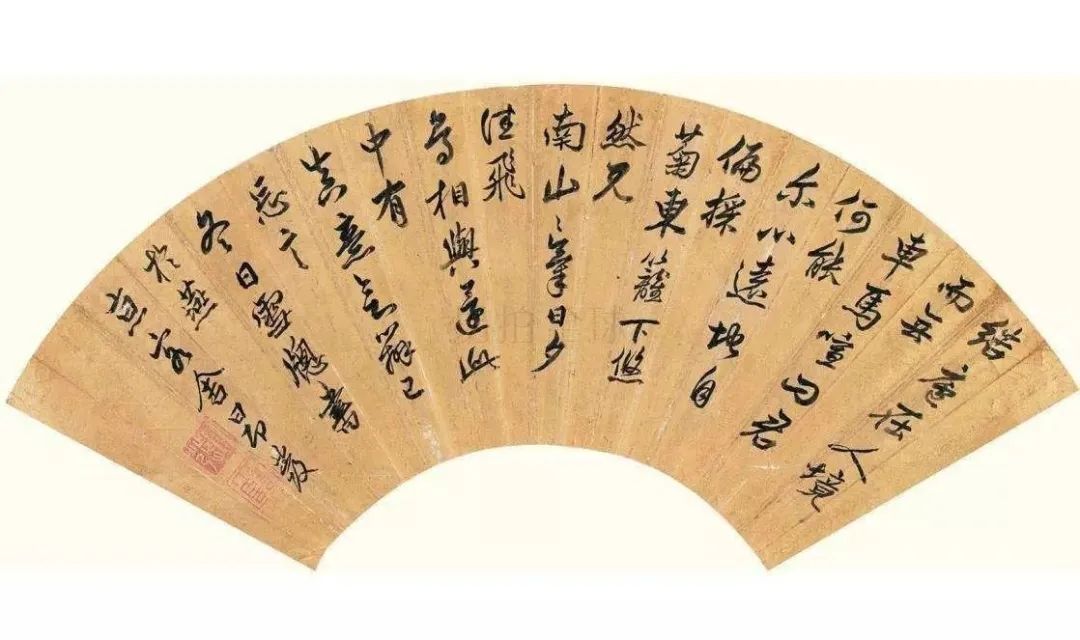 結廬在人境
而無
車馬喧问君
何能
尔心遠地自
偏採
菊東籬下悠
然見
南山〻氣日夕
佳飛
鳥相與還此
中有
真意欲辨已
忘言
冬日雪牕書
於燕